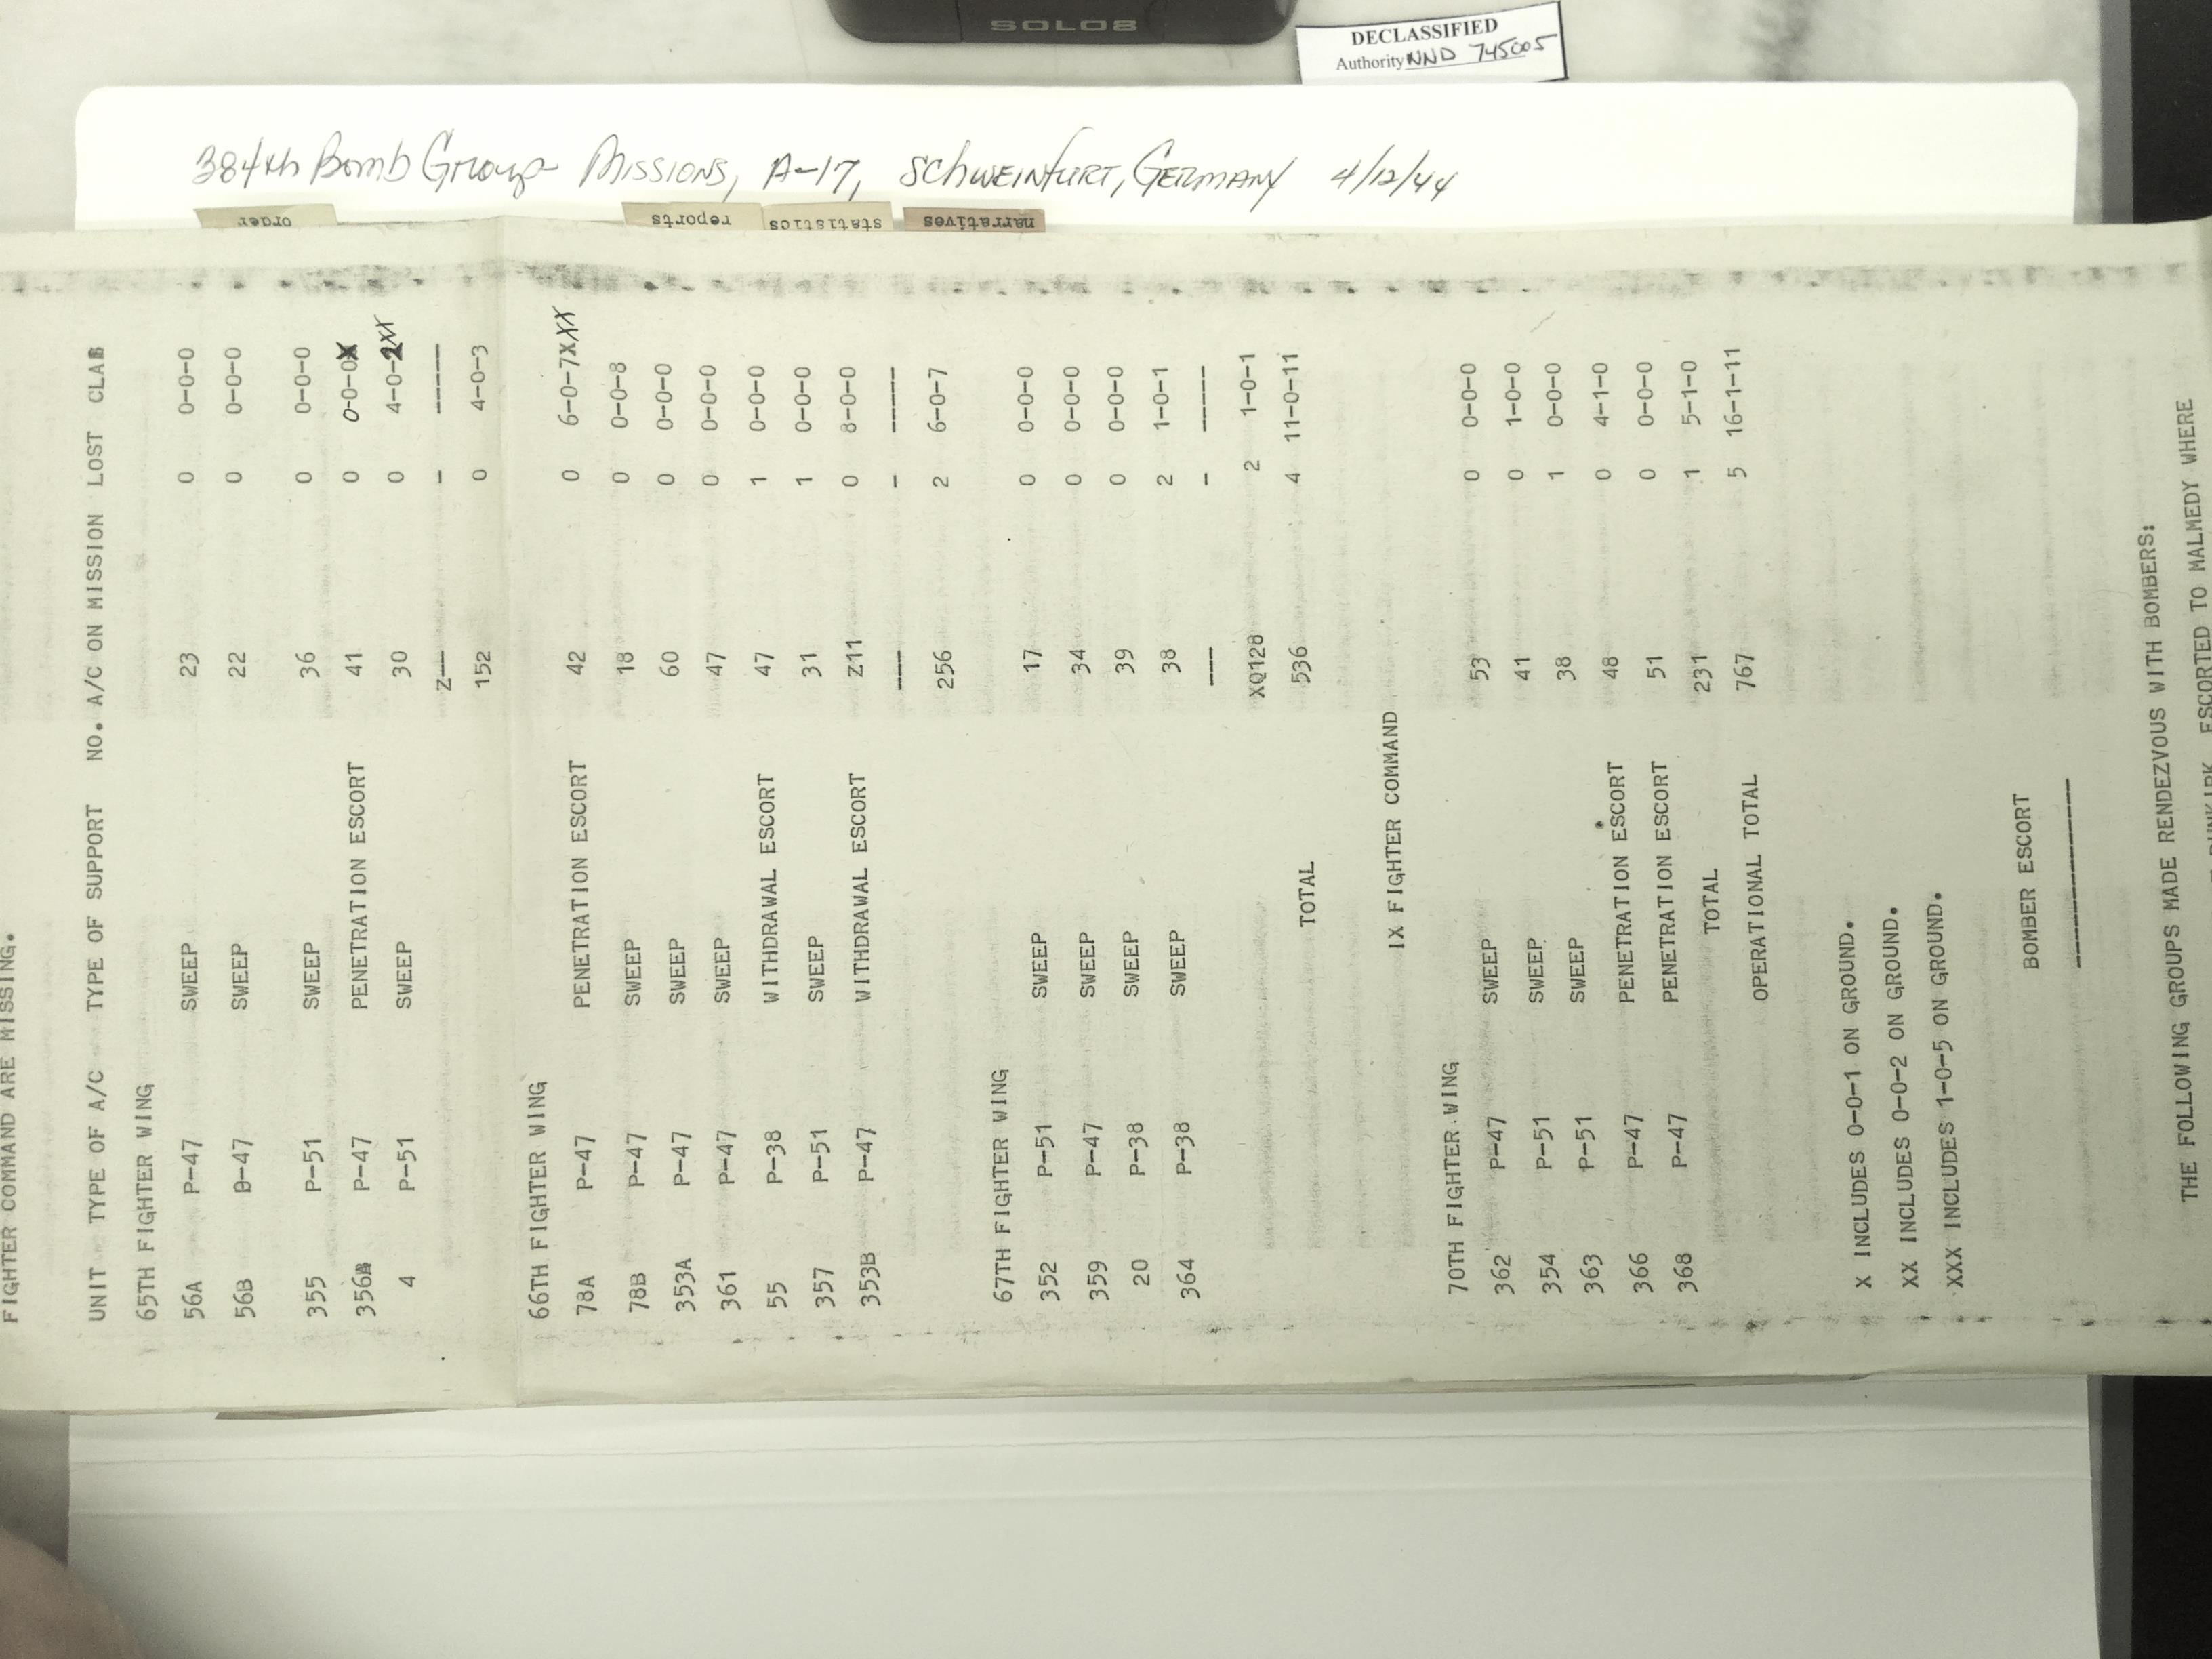 SOLO8
DECLASSIFIED
Authority NND 745005
384th Bomb Group Missions, A-17, Schweinfurt, Germany 4/12/44
order
reports
statistics
narratives
FIGHTER COMMAND ARE MISSING.
UNIT TYPE OF A/C TYPE OF SUPPORT NO. A/C ON MISSION LOST CLAS
65TH FIGHTER WING
56A P-47 SWEEP 23 0 0-0-0
56B B-47 SWEEP 22 0 0-0-0
355 P-51 SWEEP 36 0 0-0-0
356B P-47 PENETRATION ESCORT 41 0 0-0-0X
4 P-51 SWEEP 30 0 4-0-2XX
Z-- - -----
152 0 4-0-3
66TH FIGHTER WING
78A P-47 PENETRATION ESCORT 42 0 6-0-7XXX
78B P-47 SWEEP 18 0 0-0-8
353A P-47 SWEEP 60 0 0-0-0
361 P-47 SWEEP 47 0 0-0-0
55 P-38 WITHDRAWAL ESCORT 47 1 0-0-0
357 P-51 SWEEP 31 1 0-0-0
353B P-47 WITHDRAWAL ESCORT Z11 0 8-0-0
--- - -----
256 2 6-0-7
67TH FIGHTER WING
352 P-51 SWEEP 17 0 0-0-0
359 P-47 SWEEP 34 0 0-0-0
20 P-38 SWEEP 39 0 0-0-0
364 P-38 SWEEP 38 2 1-0-1
--- - -----
XQ128 2 1-0-1
TOTAL 536 4 11-0-11
IX FIGHTER COMMAND
70TH FIGHTER WING
362 P-47 SWEEP 53 0 0-0-0
354 P-51 SWEEP 41 0 1-0-0
363 P-51 SWEEP 38 1 0-0-0
366 P-47 PENETRATION ESCORT 48 0 4-1-0
368 P-47 PENETRATION ESCORT 51 0 0-0-0
TOTAL 231 1 5-1-0
OPERATIONAL TOTAL 767 5 16-1-11
X INCLUDES 0-0-1 ON GROUND.
XX INCLUDES 0-0-2 ON GROUND.
XXX INCLUDES 1-0-5 ON GROUND.
BOMBER ESCORT
--------------
THE FOLLOWING GROUPS MADE RENDEZVOUS WITH BOMBERS:
ESCORTED TO MALMEDY WHERE